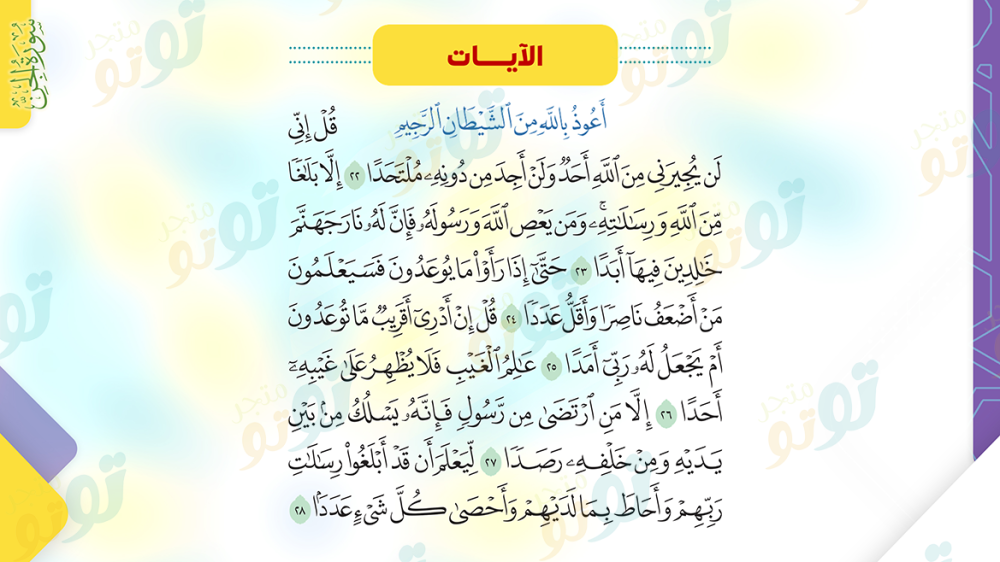 سورة الجن
الآيـــات
أَعُوذُ بِاللَّهِ مِنَ ٱلشَّيْطَانِ ٱلرَّجِيمِ قُلْ إِنِّي
لَن يُجِيرَنِي مِنَ ٱللَّهِ أَحَدٌ وَلَنْ أَجِدَ مِن دُونِهِۦ مُلْتَحَدًا ٢٢ إِلَّا بَلَٰغًا
مِّنَ ٱللَّهِ وَرِسَٰلَٰتِهِۦۚ وَمَن يَعْصِ ٱللَّهَ وَرَسُولَهُۥ فَإِنَّ لَهُۥ نَارَ جَهَنَّمَ
خَٰلِدِينَ فِيهَآ أَبَدًا ٢٣ حَتَّىٰٓ إِذَا رَأَوْا۟ مَا يُوعَدُونَ فَسَيَعْلَمُونَ
مَنْ أَضْعَفُ نَاصِرًا وَأَقَلُّ عَدَدًا ٢٤ قُلْ إِنْ أَدْرِىٓ أَقَرِيبٌ مَّا تُوعَدُونَ
أَمْ يَجْعَلُ لَهُۥ رَبِّىٓ أَمَدًا ٢٥ عَٰلِمُ ٱلْغَيْبِ فَلَا يُظْهِرُ عَلَىٰ غَيْبِهِۦٓ
أَحَدًا ٢٦ إِلَّا مَنِ ٱرْتَضَىٰ مِن رَّسُولٍ فَإِنَّهُۥ يَسْلُكُ مِنۢ بَيْنِ
يَدَيْهِ وَمِنْ خَلْفِهِۦ رَصَدًا ٢٧ لِّيَعْلَمَ أَن قَدْ أَبْلَغُوا۟ رِسَٰلَٰتِ
رَبِّهِمْ وَأَحَاطَ بِمَا لَدَيْهِمْ وَأَحْصَىٰ كُلَّ شَىْءٍ عَدَدًۢا ٢٨
متجر
توتو